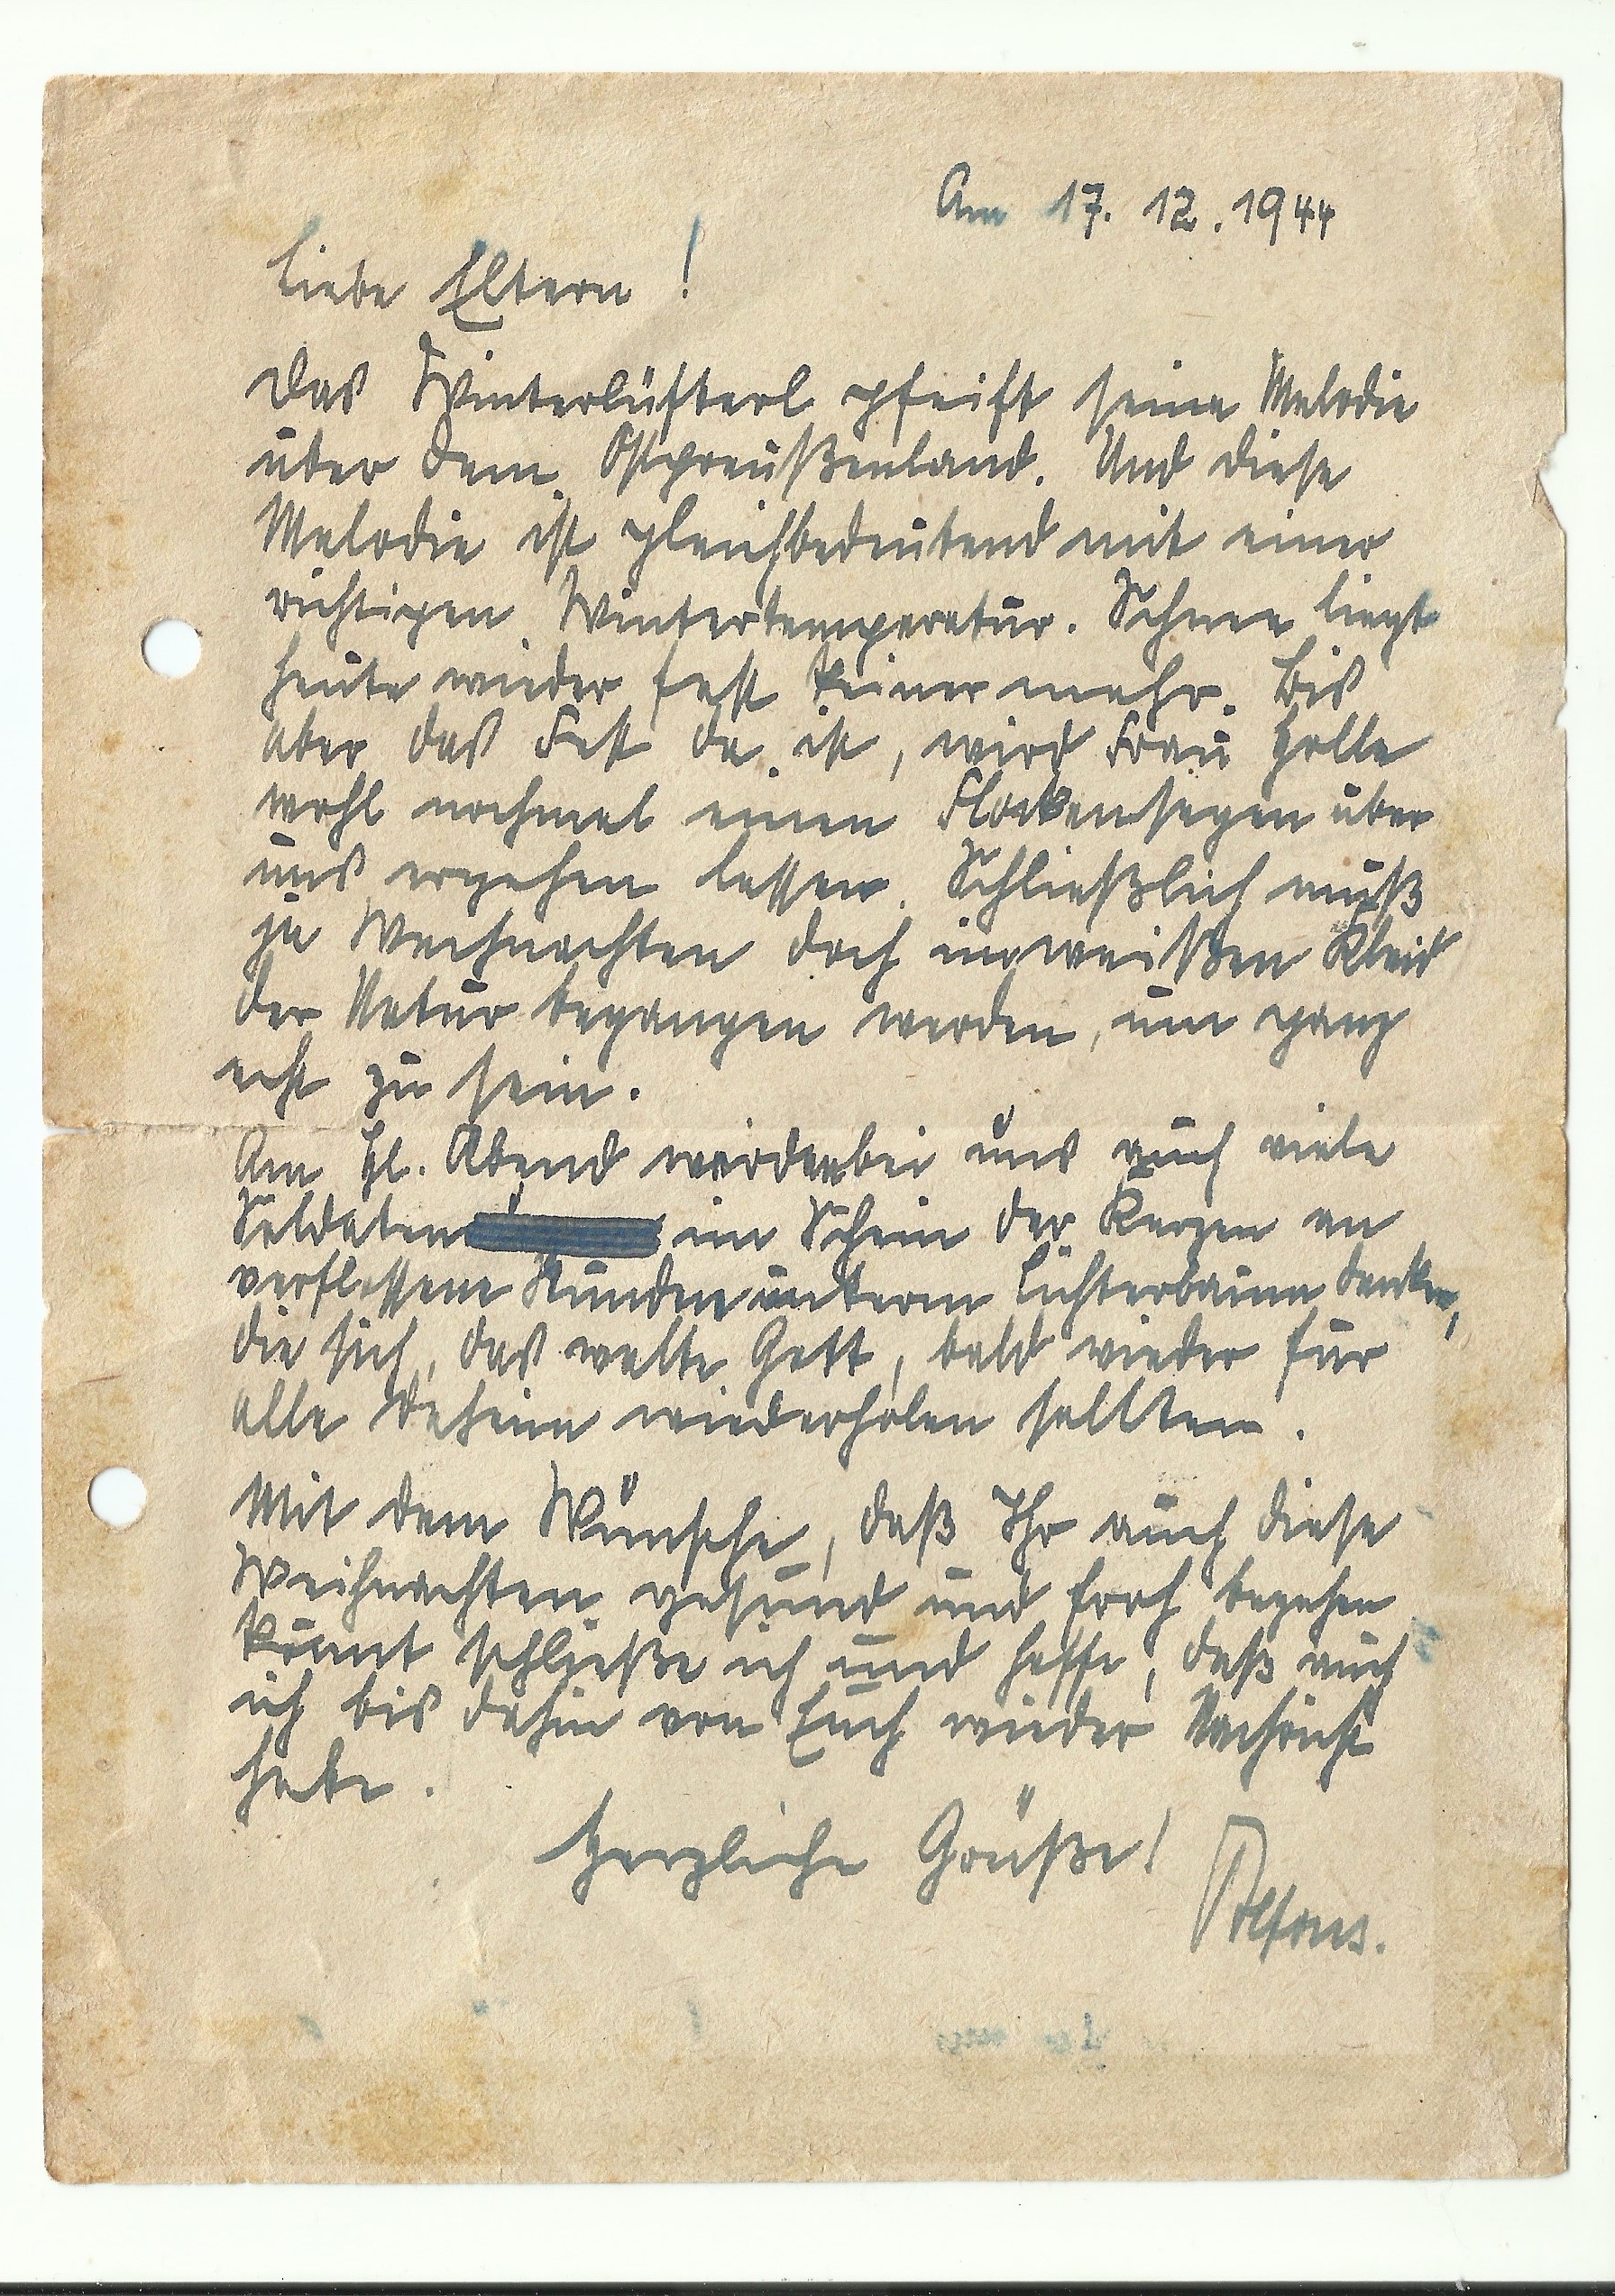 Am 17. 12. 1944
Liebe Eltern!
Das Winterlüfterl pfeift seine Melodie
über dem Ostpreußenland. Und diese
Melodie ist gleichbedeutend mit einer
richtigen Wintertemperatur. Schnee liegt
heute wieder fast keiner mehr. Bis
aber das Fest da ist, wird Frau Holle
wohl nochmal einen Flockensegen über
uns ergehen lassen. Schließlich muß
ja Weihnachten doch im weißen Kleid
der Natur begangen werden, um ganz
echt zu sein.
Am Hl. Abend werden bei uns auch viele
Soldaten im Schein der Kerzen an
verflossene Stunden unterm Lichterbaum denken,
die sich, das walte Gott, bald wieder für
alle Daheim wiederholen sollten.
Mit dem Wunsche, daß Ihr auch diese
Weihnachten gesund und froh begehen
könnt schließe ich und hoffe, daß auch
ich bis dahin von Euch wieder Nachricht
habe.
Herzliche Grüße!
Alfons.